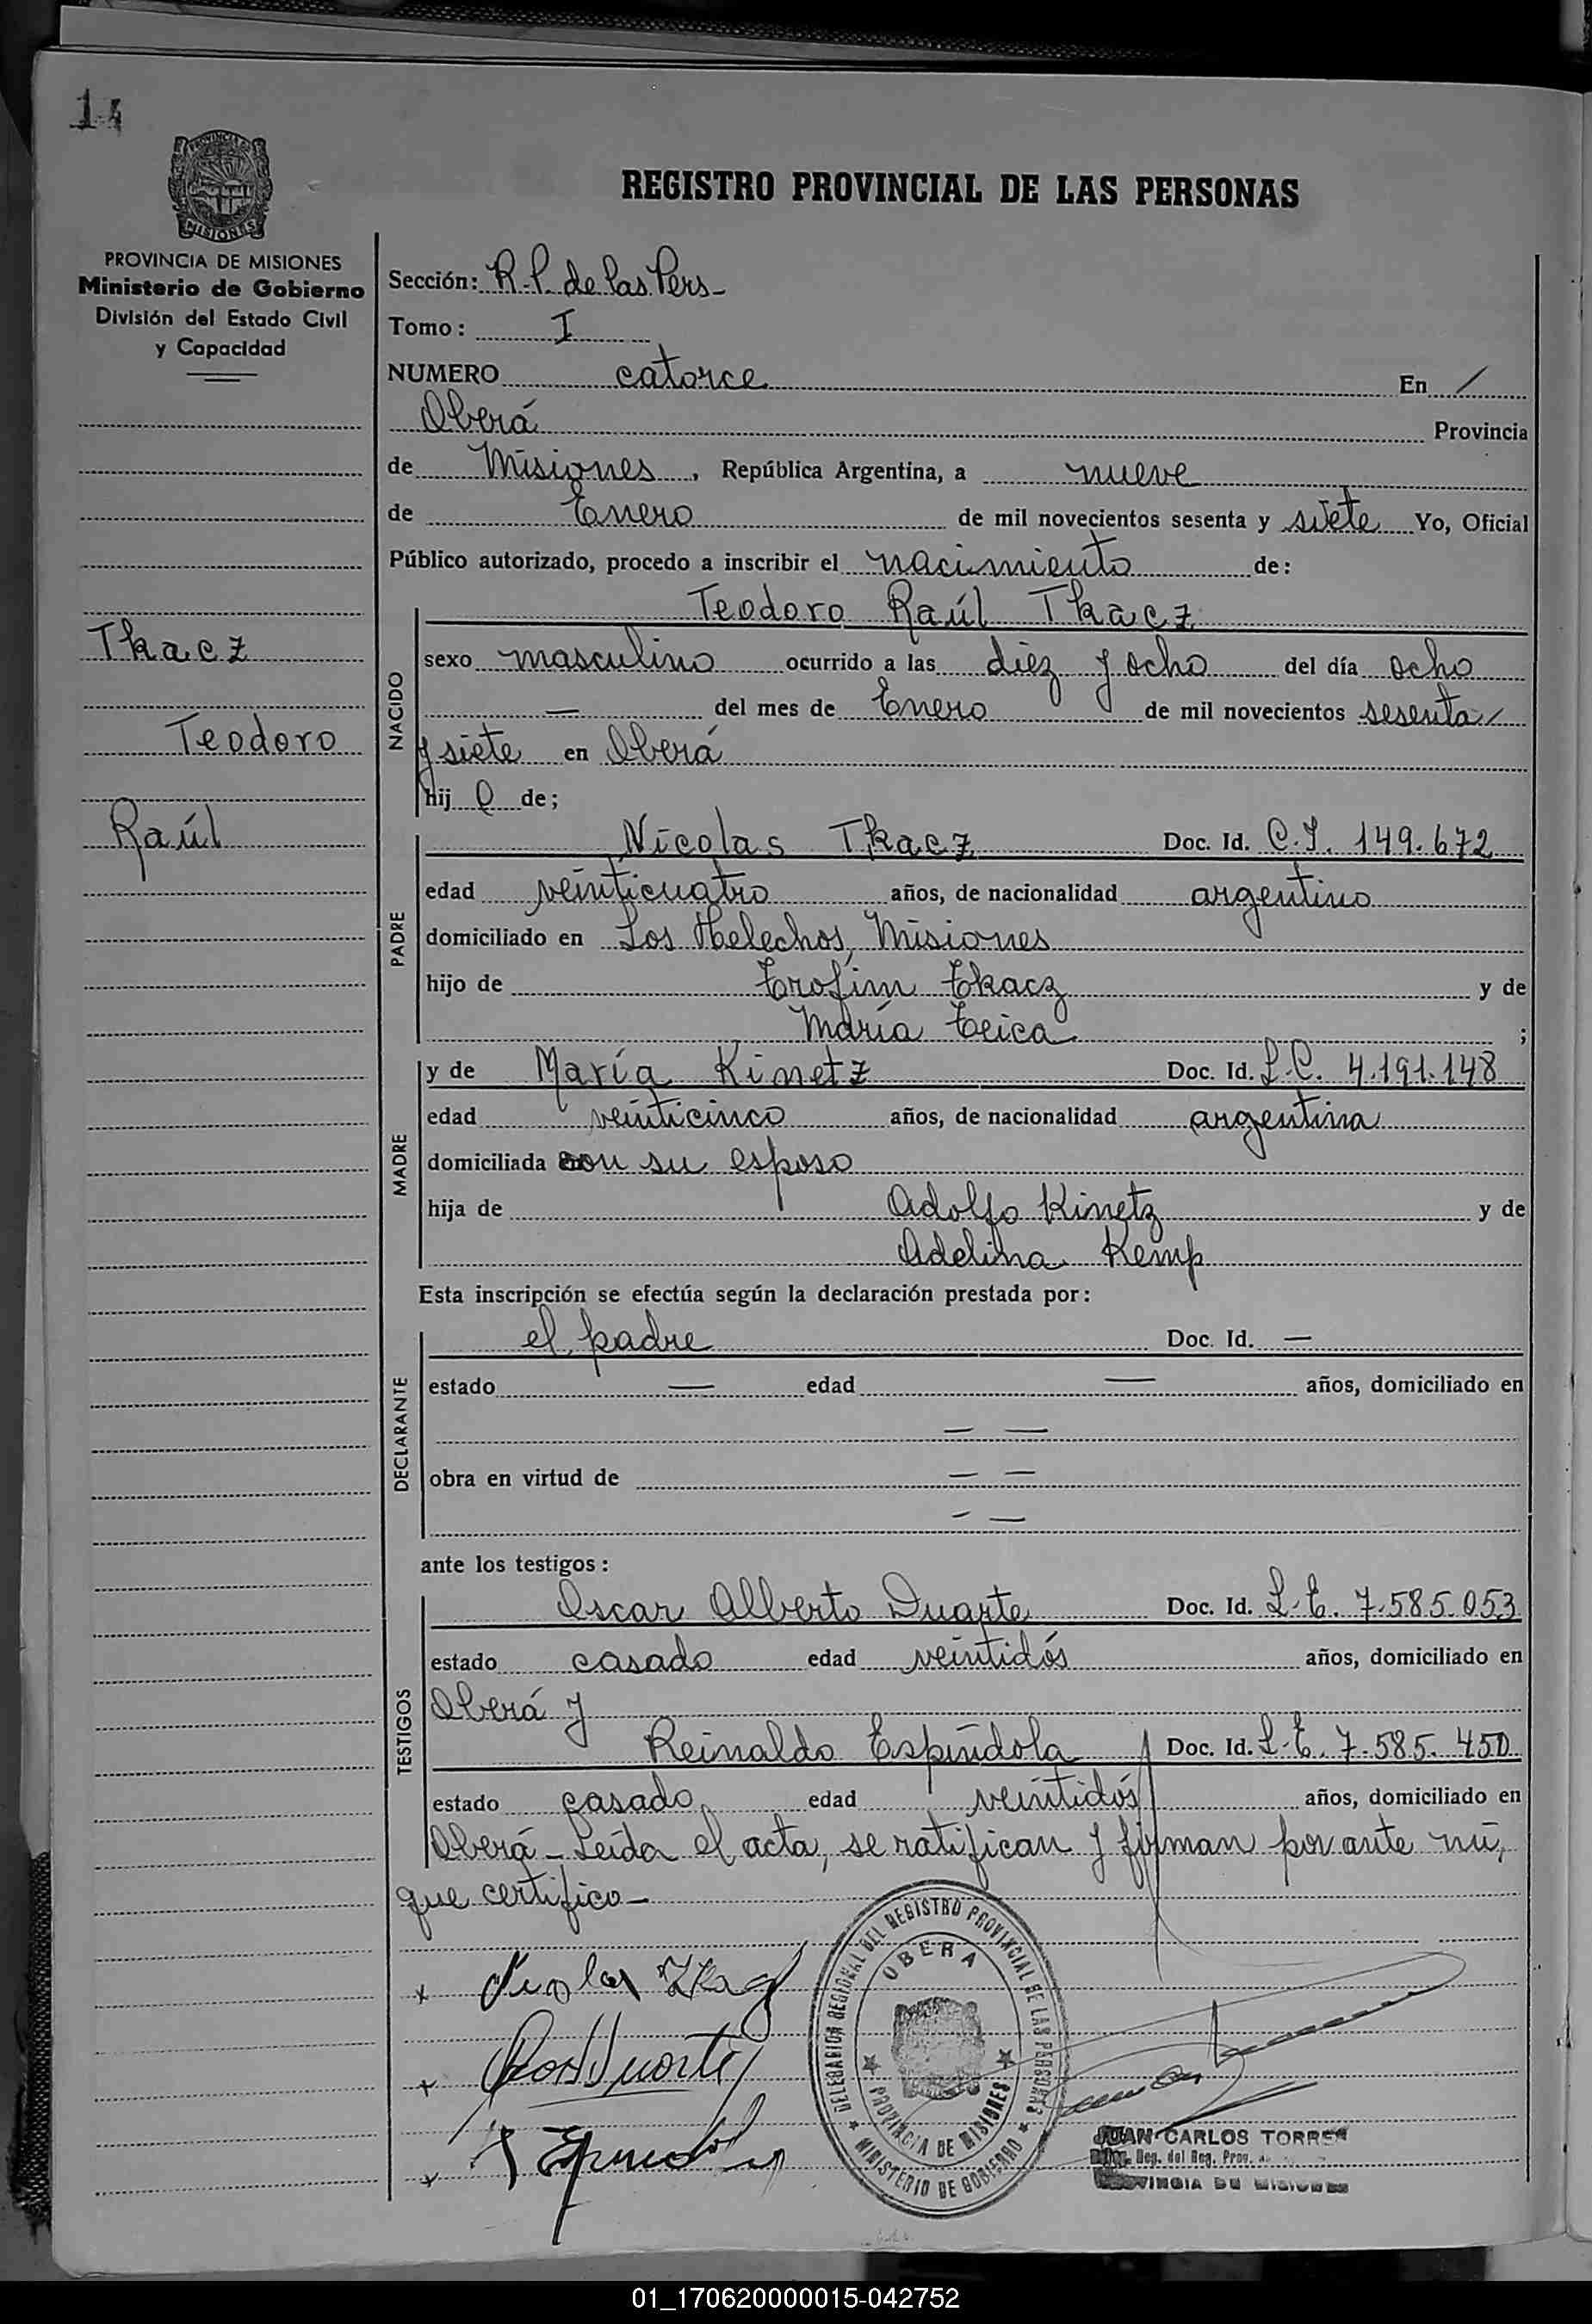 14
PROVINCIA DE
MISIONES
REGISTRO PROVINCIAL DE LAS PERSONAS
PROVINCIA DE MISIONES
Ministerio de Gobierno
División del Estado Civil
y Capacidad
Tkacz
Teodoro
Raúl
Sección: R.P. de las Pers-
Tomo: I
NUMERO catorce En /
Oberá Provincia
de Misiones, República Argentina, a nueve
de Enero de mil novecientos sesenta y siete Yo, Oficial
Público autorizado, procedo a inscribir el nacimiento de:
NACIDO
Teodoro Raúl Tkacz
sexo masculino ocurrido a las diez y ocho del día ocho
— del mes de Enero de mil novecientos sesenta /
y siete en Oberá
hij o de;
PADRE
Nicolas Tkacz Doc. Id. C.I. 149.672
edad veinticuatro años, de nacionalidad argentino
domiciliado en Los Helechos, Misiones
hijo de Trofim Tkacz y de
María Teica ;
MADRE
y de María Kinetz Doc. Id. L.C. 4.191.148
edad veinticinco años, de nacionalidad argentina
domiciliada con su esposo
hija de Adolfo Kinetz y de
Adelina Kemp
Esta inscripción se efectúa según la declaración prestada por:
DECLARANTE
el padre Doc. Id. —
estado — edad — años, domiciliado en
— —
obra en virtud de — —
- —
ante los testigos:
TESTIGOS
Oscar Alberto Duarte Doc. Id. L.E. 7.585.053
estado casado edad veintidós años, domiciliado en
Oberá y
Reinaldo Espíndola Doc. Id. L.E. 7.585.450
estado casado edad veintidós años, domiciliado en
Oberá - Leída el acta, se ratifican y firman por ante mí,
que certifico -
x Nicolas Tkacz
x Duarte
x Espindola
DELEGACION REGIONAL DEL REGISTRO PROVINCIAL DE LAS PERSONAS
OBERA
PROVINCIA DE MISIONES
MINISTERIO DE GOBIERNO
JUAN CARLOS TORRES
Reg. del Reg. Prov.
PROVINCIA DE MISIONES
01_170620000015-042752